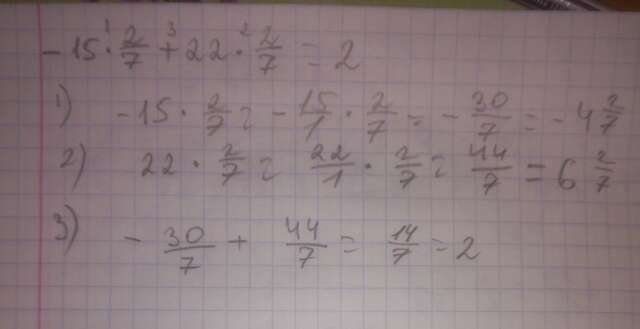 -15 · 2/7 + 22 · 2/7 = 2
1) -15 · 2/7 = -15/1 · 2/7 = -30/7 = -4 2/7
2) 22 · 2/7 = 22/1 · 2/7 = 44/7 = 6 2/7
3) -30/7 + 44/7 = 14/7 = 2